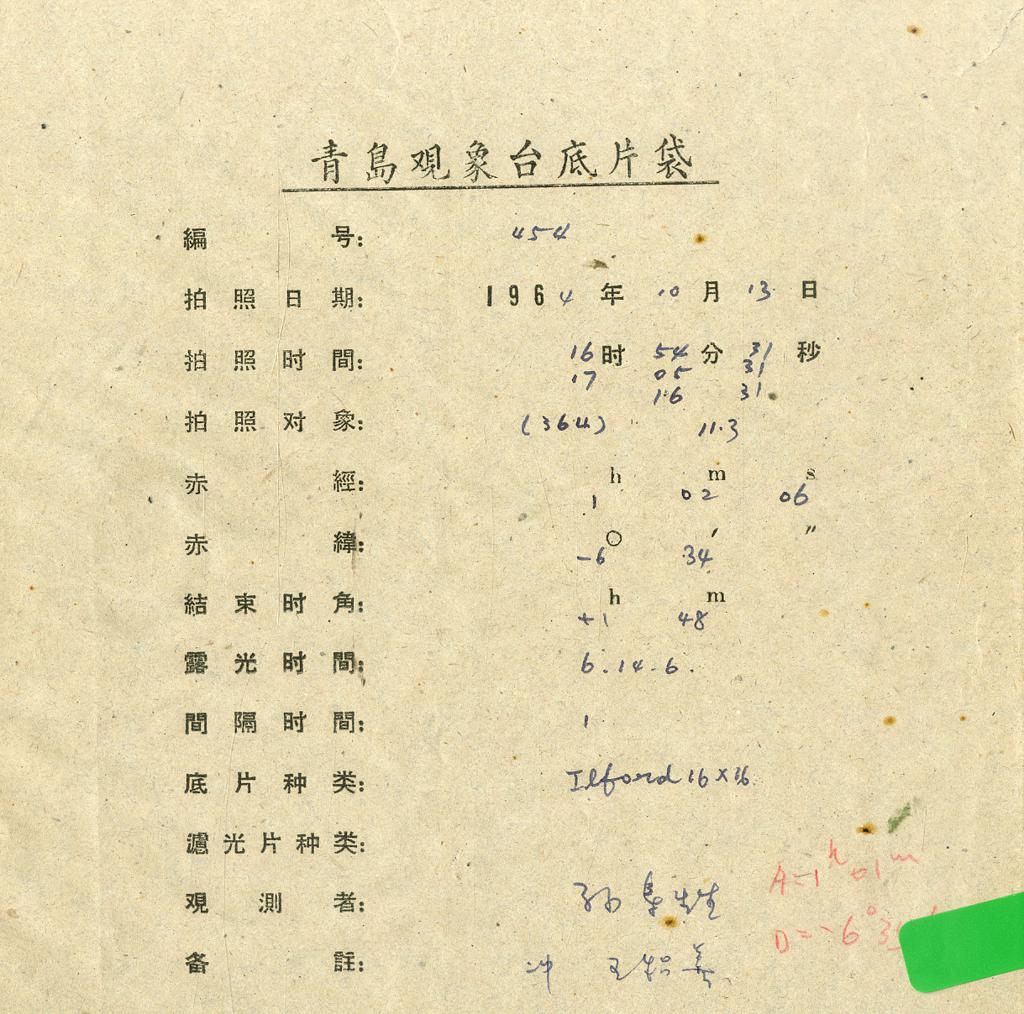 青島观象台底片袋
編号: 454
拍照日期: 1964年10月13日
拍照时間: 16时54分31秒
17 05 31
16 31
拍照对象: (364) 11.3
赤經: 1h 02m 06s
赤緯: -6° 34′ ″
結束时角: +1h 48m
露光时間: 6.14.6.
間隔时間: 1
底片种类: Ilford 16×16
濾光片种类:
观測者: 孙
A=1h 01m
D=-6°
备註: 冲 王